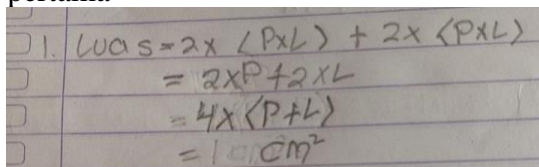 pertama
1. Luas = 2x <PxL> + 2x <PxL>
= 2xP+2xL
= 4x<P+L>
= 1 cm²